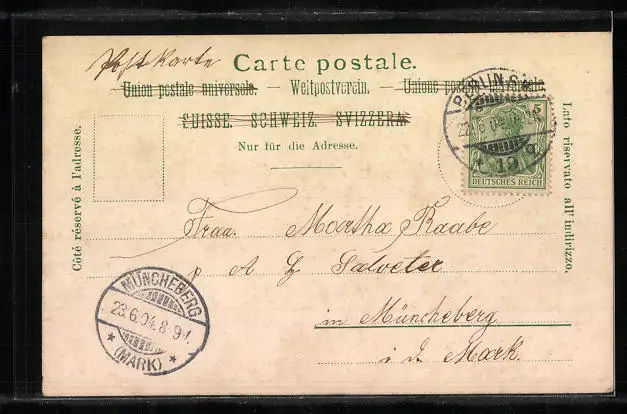 Postkarte Carte postale.
Union postale universelle. — Weltpostverein. — Unione postale universale.
SUISSE. SCHWEIZ. SVIZZERA.
Nur für die Adresse.
Côté réservé à l'adresse.
Lato riservato all' indirizzo.
BERLIN
5
DEUTSCHES REICH
Frau Martha Raabe
Salveter
in Müncheberg
i. d. Mark.
MÜNCHEBERG
23.6.04.8-9V.
* (MARK) *